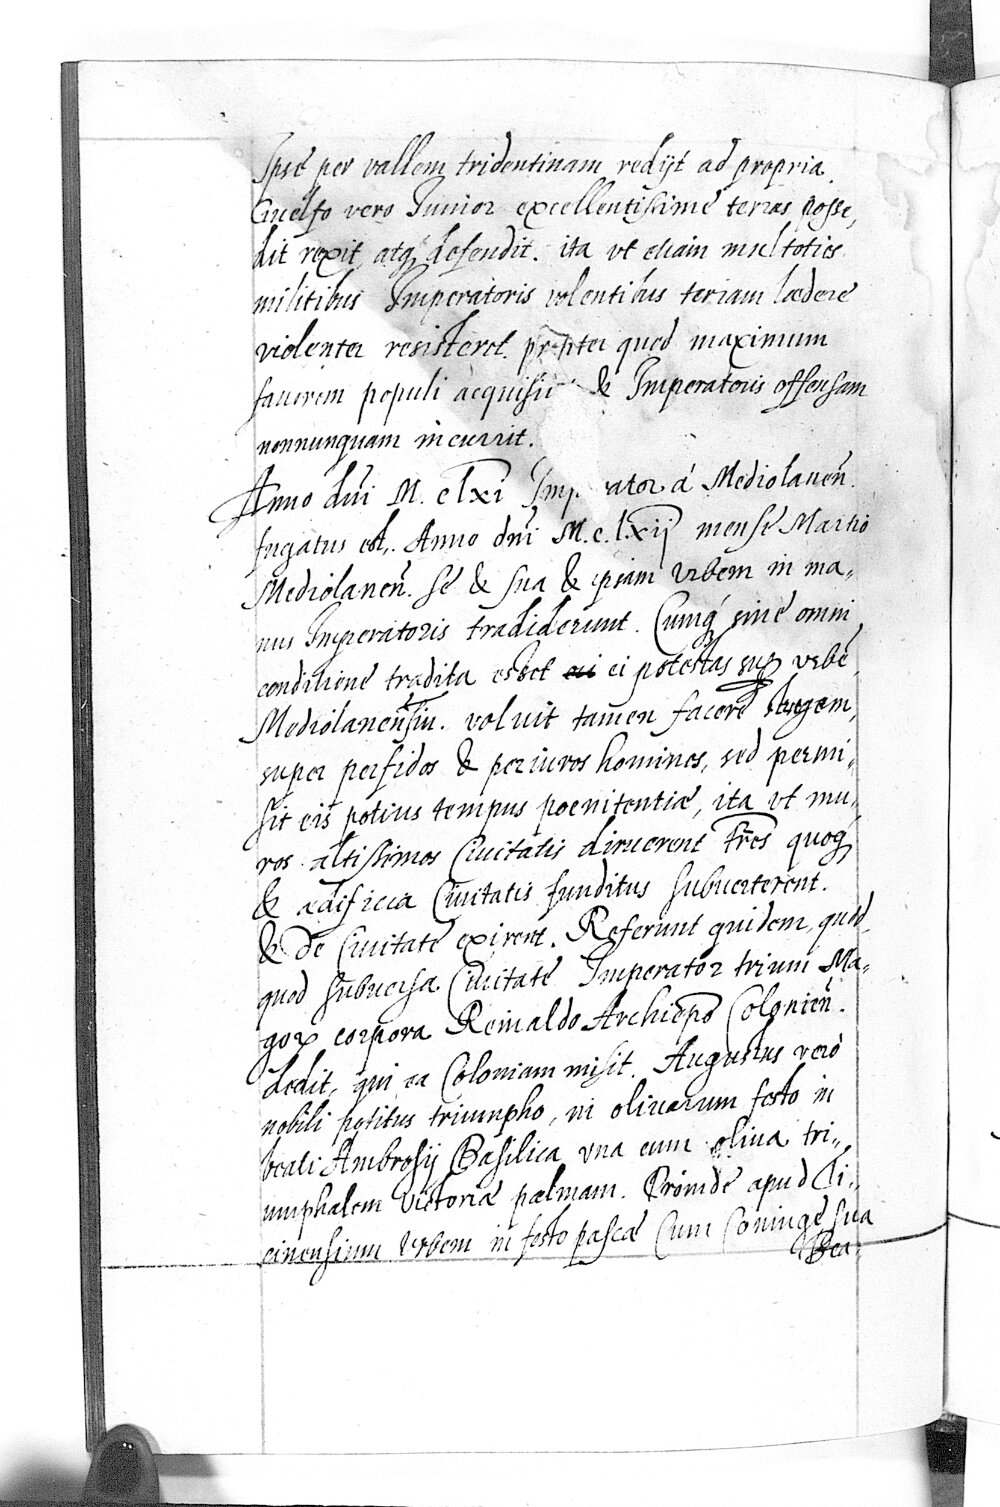 Ipse per vallem tridentinam redijt ad propria.
Guelfo vero Junior excellentissime terras posse,
dit rexit atq́ defendit. ita vt etiam multoties
militibus Imperatoris volentibus terram lædere
violenter resisteret. propter quod maximum
fauorem populi acquisiu & Imperatoris offensam
nonnunquam incurrit.
Anno dn̄i M. clxi Imp rator á Mediolanen̄
fugatus est. Anno dn̄i M.c.lxij mense Martio
Mediolanen̄. se & sua & ipsam vrbem in ma,,
nus Imperatoris tradiderunt. Cumq́ sine omni
conditione tradita esset ei potestas sup vrbē
Mediolanensiū. voluit tamen facere legem,
super perfidos & periuros homines, sed permi,,
sit eis potius tempus poenitentiæ, ita vt mu,,
ros altissimos Ciuitatis diruerent Tr̄es quoq́
& ædificia Ciuitatis funditus subuerterent.
& de Ciuitate exirent. Referunt quidem, quod,
quod subuersa Ciuitate Imperator trium Ma,,
goꝝ corpora Reinaldo Archiep̄o Colonien̄.
dedit, qui ea Coloniam misit. Augustus verò
nobili potitus triumpho, in oliuarum festo in
beati Ambrosij Basilica vna cum oliua tri,,
umphalem victoriæ palmam. Proinde apud Ti,,
cinensium vrbem in festo pascæ Cum Coniuge sua
Bea,,